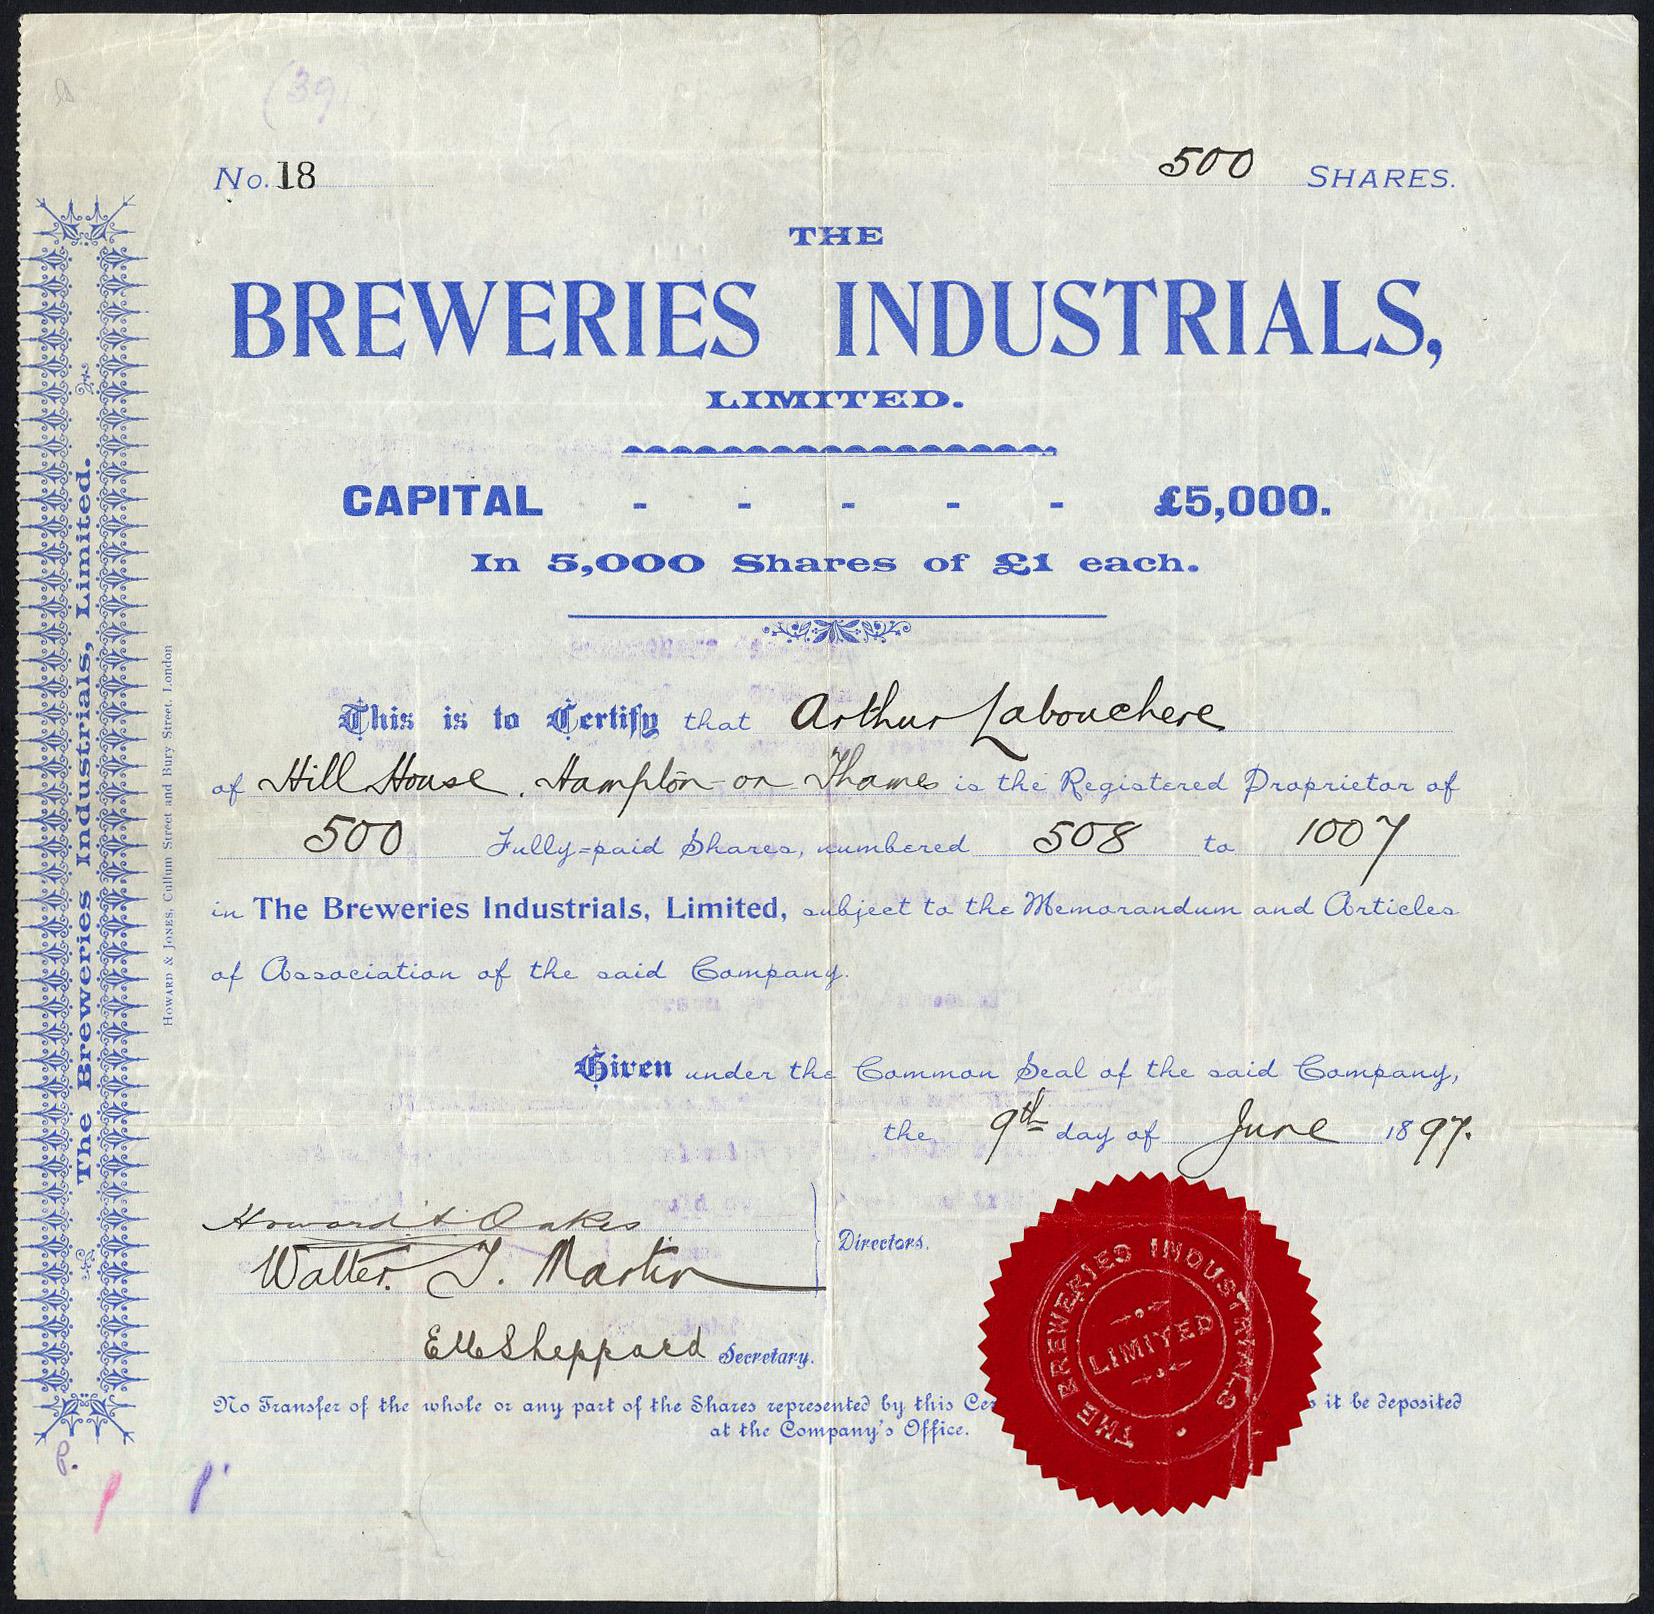 (39)
No. 18
500 SHARES.
THE
BREWERIES INDUSTRIALS,
LIMITED.
CAPITAL - - - - - £5,000.
In 5,000 Shares of £1 each.
This is to Certify that Arthur Labouchere
of Hill House, Hampton-on Thames is the Registered Proprietor of
500 Fully=paid Shares, numbered 508 to 1007
in The Breweries Industrials, Limited, subject to the Memorandum and Articles
of Association of the said Company.
Given under the Common Seal of the said Company,
the 9th day of June 1897.
Howard Oakes
Walter T. Martin
Directors.
Sheppard Secretary.
No Transfer of the whole or any part of the Shares represented by this Cer it be deposited
at the Company's Office.
THE BREWERIES INDUSTRIALS
LIMITED
The Breweries Industrials, Limited.
HOWARD & JONES, Cullum Street and Bury Street, London
P.